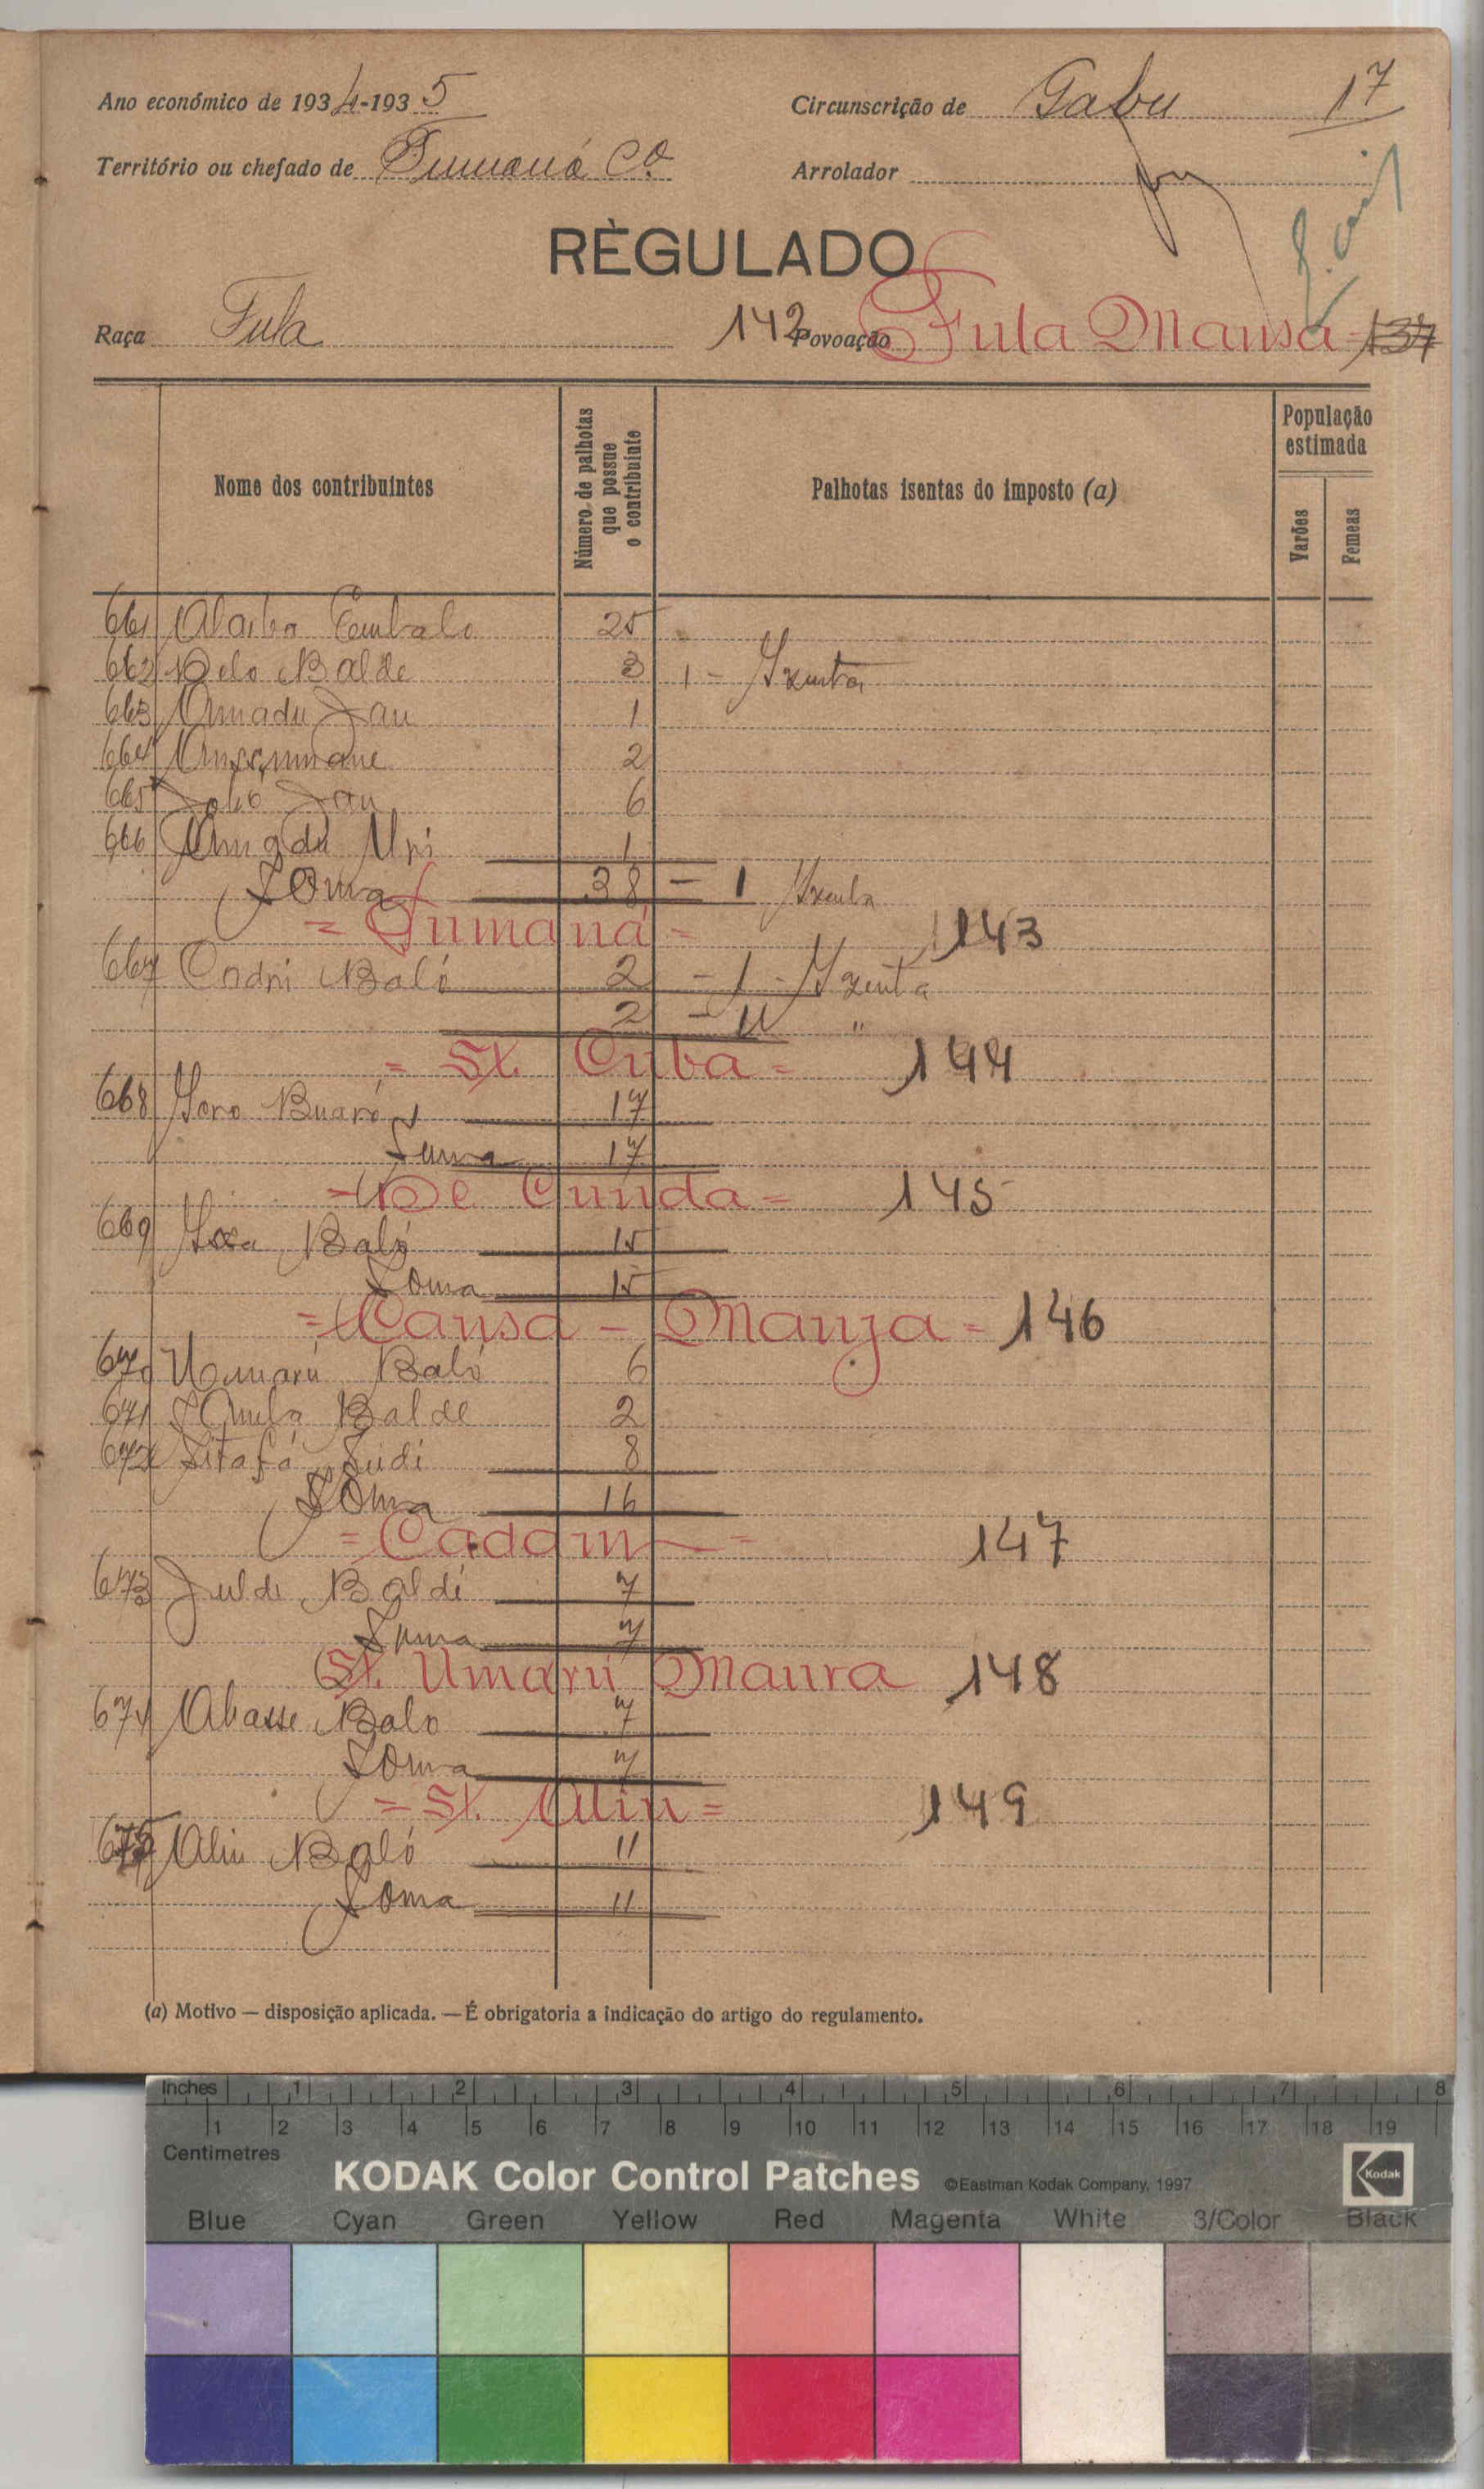 Ano económico de 1934-1935
Circunscrição de Gabu 17
Território ou chefado de Tumaná Cª.
Arrolador
RÈGULADO
Raça Fula
142 Povoação Fula Mansa - 137
Nome dos contribuintes
Número de palhotas que possue o contribuinte
Palhotas isentas do imposto (a)
População estimada
Varões
Femeas
661 Alarba Embalo 25
662 Delo Balde 3 1 - Izenta
663 Amadu Jau 1
664 2
665 Jau 6
666 Amadu Uri 1
Soma 38 = 1 Izenta
= Tumaná = 143
667 Cadri Baló 2 - 1 - Izenta
2 - 1 "
= St. Cuba = 144
668 Soro Buaró 17
Suma 17
= De Cunda = 145
669 Baló 15
Soma 15
= Cansa - Manja = 146
670 Umaru Baló 6
671 Balde 2
672 Sitafá Sudi 8
Soma 16
= Cadam = 147
673 Julde Baldé 7
Suma 7
St. Umarú Maura 148
674 Abasse Balo 7
Soma 7
= St. Aliu = 149
675 Aliu Baló 11
Soma 11
(a) Motivo — disposição aplicada. — É obrigatoria a indicação do artigo do regulamento.
Inches 1 2 3 4 5 6 7 8
1 2 3 4 5 6 7 8 9 10 11 12 13 14 15 16 17 18 19
Centimetres
KODAK Color Control Patches ©Eastman Kodak Company, 1997 Kodak
Blue Cyan Green Yellow Red Magenta White 3/Color Black